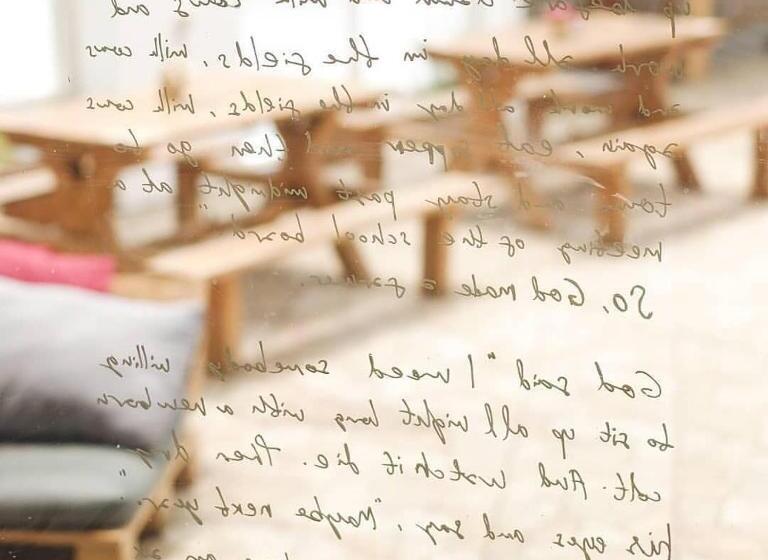 cows and
work all day in the fields, milk cows
and work all day in the fields, milk cows
again, eat supper and then go to
town and stay past midnight" at a
meeting of the school board
So, God made a farmer.
God said "I need somebody willing
to sit up all night long with a newborn
colt. And watch it die. Then dry
his eyes and say, "Maybe next year."